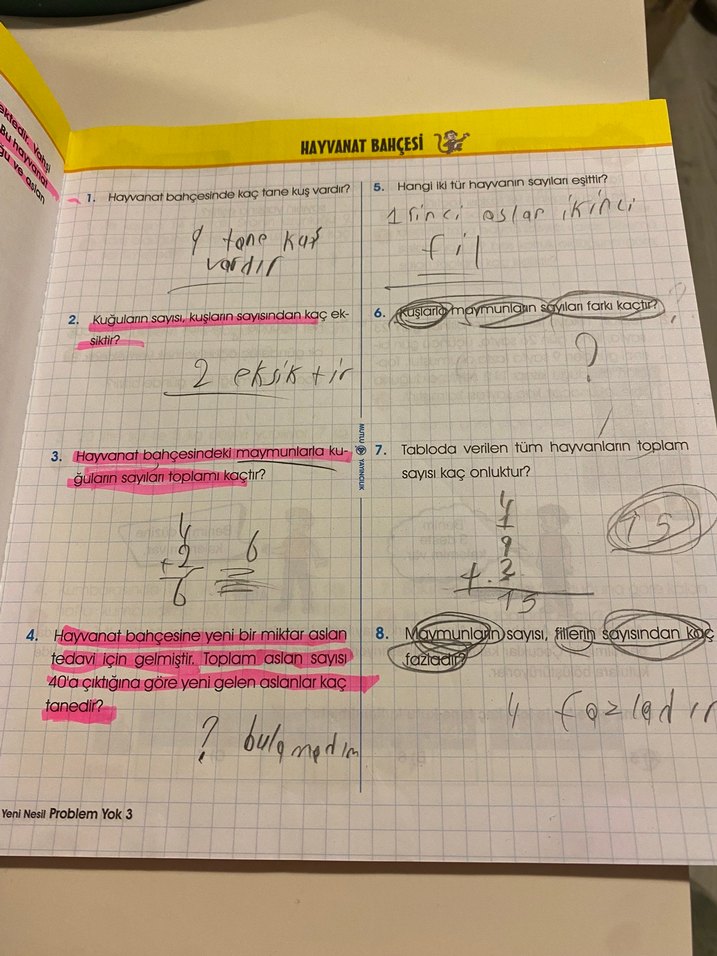 ektedir. Vahşi
Bu hayvanat
ğu ve aslan
HAYVANAT BAHÇESİ
1. Hayvanat bahçesinde kaç tane kuş vardır?
9 tane kuş
vardır
2. Kuğuların sayısı, kuşların sayısından kaç ek-
siktir?
2 eksiktir
3. Hayvanat bahçesindeki maymunlarla ku-
ğuların sayıları toplamı kaçtır?
4
+2
6
6
4. Hayvanat bahçesine yeni bir miktar aslan
tedavi için gelmiştir. Toplam aslan sayısı
40'a çıktığına göre yeni gelen aslanlar kaç
tanedir?
? bulamadım
MUTLU YAYINCILIK
5. Hangi iki tür hayvanın sayıları eşittir?
1 rinci aslan ikinci
fil
6. Kuşlarla maymunların sayıları farkı kaçtır?
?
?
7. Tabloda verilen tüm hayvanların toplam
sayısı kaç onluktur?
4
1
9
+.2
15
15
8. Maymunların sayısı, fillerin sayısından kaç
fazladır?
4 fazladır
Yeni Nesil Problem Yok 3